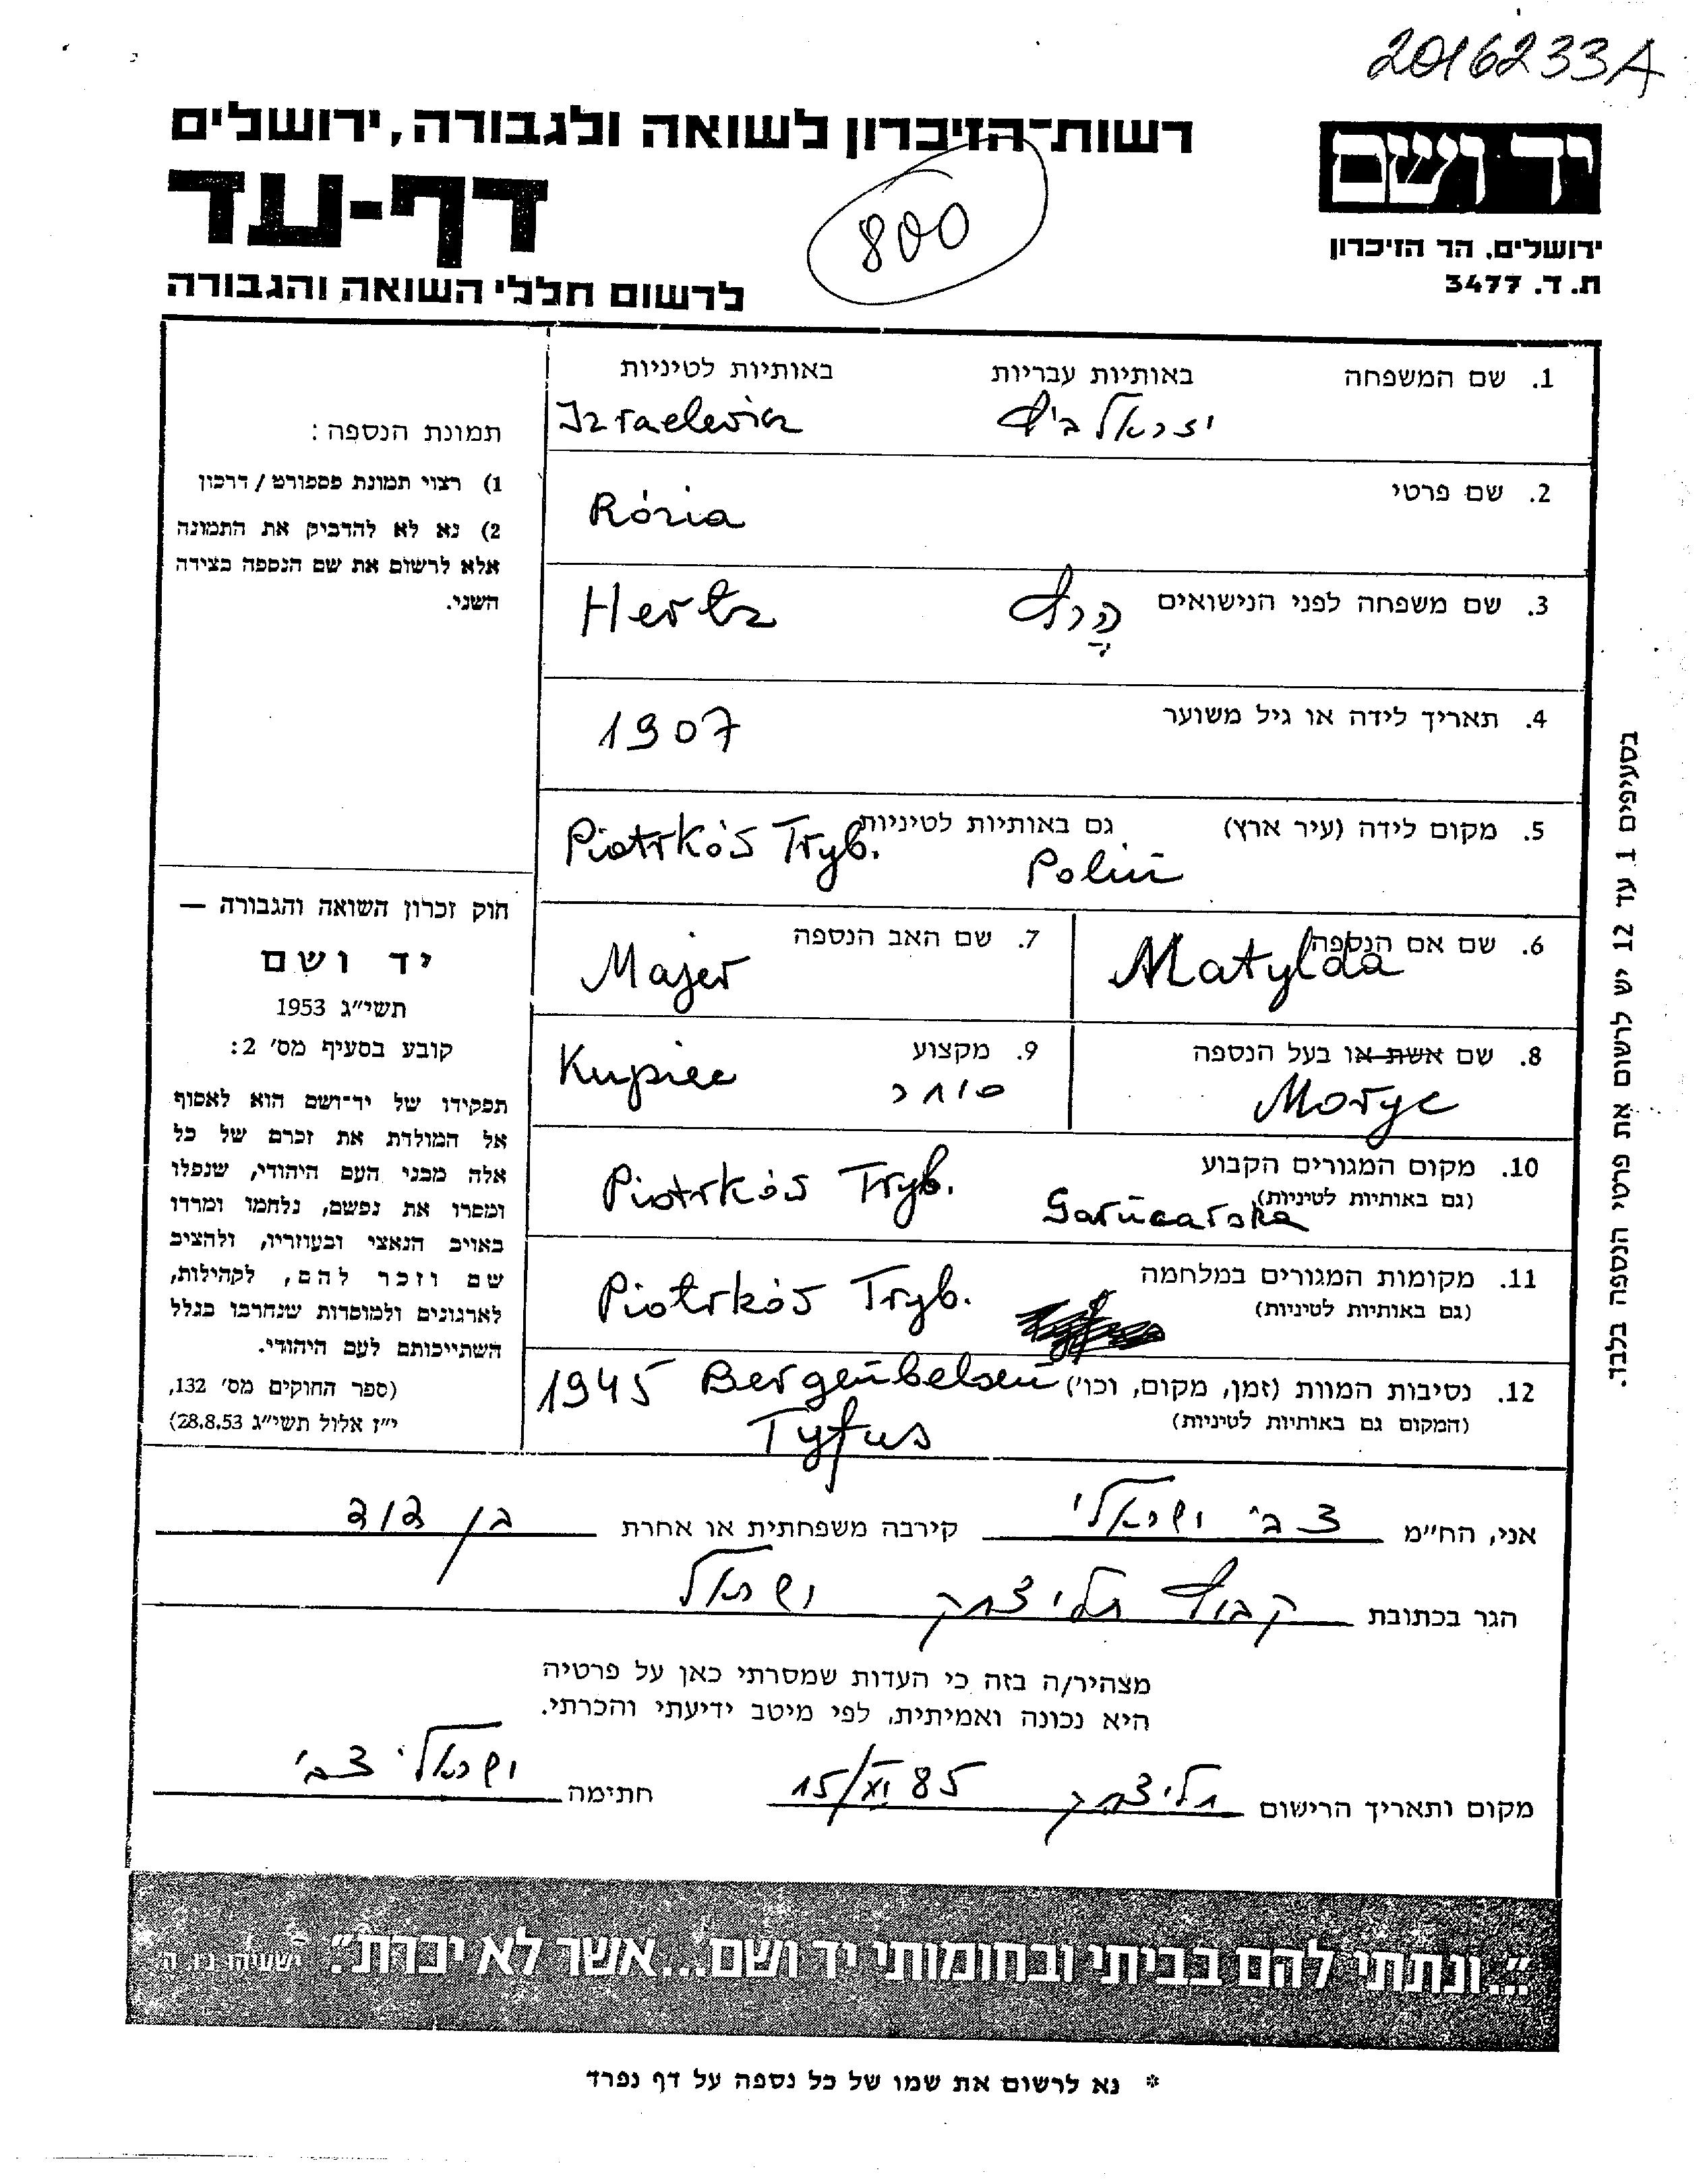 2016233A
רשות־הזיכרון לשואה ולגבורה, ירושלים
יד ושם
דף-עד
800
ירושלים, הר הזיכרון
ת. ד. 3477
לרשום חללי השואה והגבורה
1. שם המשפחה באותיות עבריות באותיות לטיניות
יזראלביץ Izraelewicz
2. שם פרטי
Rózia
3. שם משפחה לפני הנישואים הרץ Hertz
4. תאריך לידה או גיל משוער 1907
5. מקום לידה (עיר ארץ) גם באותיות לטיניות Piotrków Tryb.
Polin
6. שם אם הנספה Matylda
7. שם האב הנספה Majer
8. שם אשת או בעל הנספה Moryc
9. מקצוע סוחר Kupiec
10. מקום המגורים הקבוע Piotrków Tryb.
(גם באותיות לטיניות) Garncarska
11. מקומות המגורים במלחמה Piotrków Tryb.
(גם באותיות לטיניות)
12. נסיבות המוות (זמן, מקום, וכו') 1945 Bergenbelsen
(המקום גם באותיות לטיניות) Tyfus
תמונת הנספה:
1) רצוי תמונת פספורט / דרכון
2) נא לא להדביק את התמונה
אלא לרשום את שם הנספה בצידה
השני.
חוק זכרון השואה והגבורה —
יד ושם
תשי״ג 1953
קובע בסעיף מס׳ 2:
תפקידו של יד־ושם הוא לאסוף
אל המולדת את זכרם של כל
אלה מבני העם היהודי, שנפלו
ומסרו את נפשם, נלחמו ומרדו
באויב הנאצי ובעוזריו, ולהציב
שם וזכר להם, לקהילות,
לארגונים ולמוסדות שנחרבו בגלל
השתייכותם לעם היהודי.
(ספר החוקים מס׳ 132,
י״ז אלול תשי״ג 28.8.53)
בסעיפים 1 עד 12 יש לרשום את פרטי הנספה בלבד.
אני, הח״מ צבי ישראלי קירבה משפחתית או אחרת בן דוד
הגר בכתובת קבוץ תל יצחק ישראל
מצהיר/ה בזה כי העדות שמסרתי כאן על פרטיה
היא נכונה ואמיתית, לפי מיטב ידיעתי והכרתי.
מקום ותאריך הרישום תל יצחק 15/XI 85 חתימה ישראלי צבי
״...ונתתי להם בביתי ובחומותי יד ושם...אשר לא יכרת״. ישעיהו נו, ה
* נא לרשום את שמו של כל נספה על דף נפרד